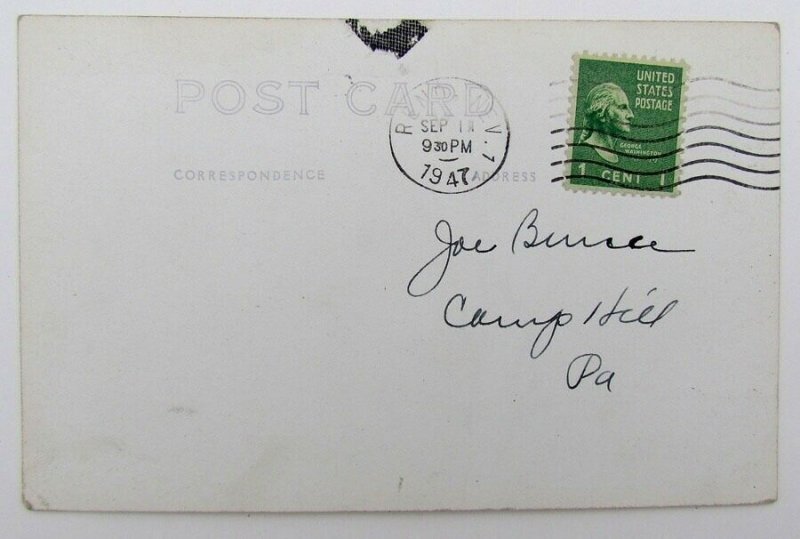 POST CARD
CORRESPONDENCE
ADDRESS
SEP
9 30 PM
1947
UNITED
STATES
POSTAGE
GEORGE
WASHINGTON
1 CENT 1
Joe
Camp Hill
Pa